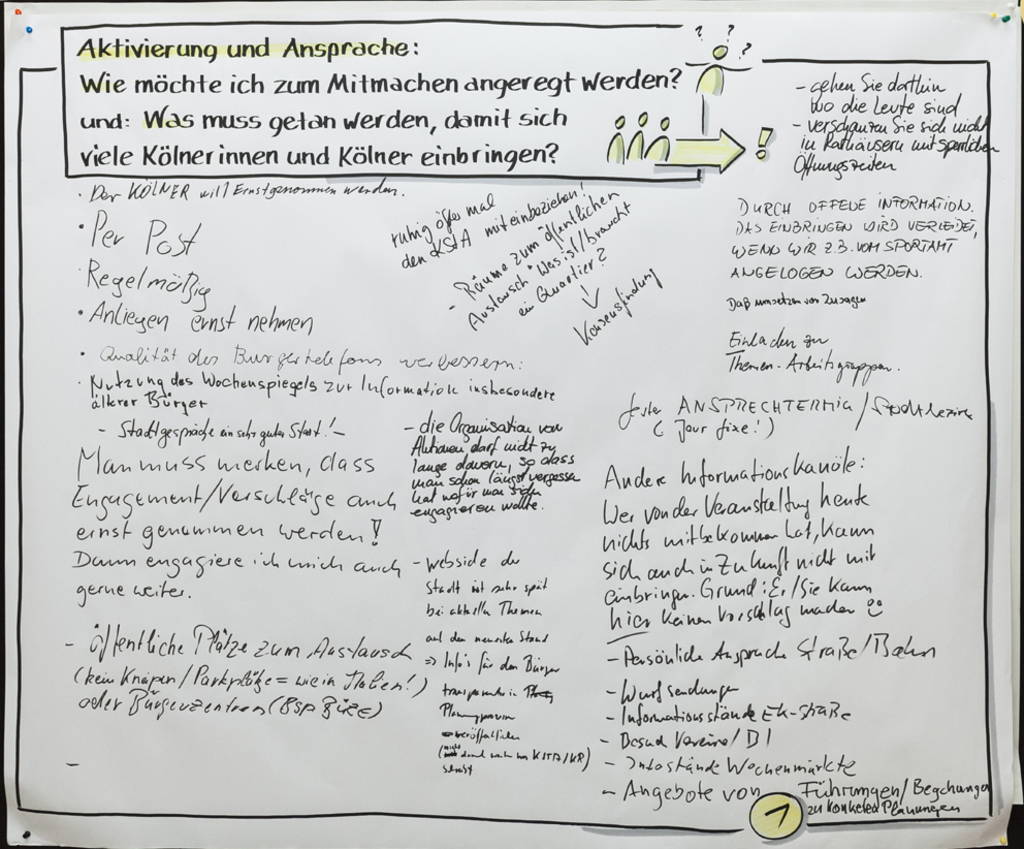 Aktivierung und Ansprache:
Wie möchte ich zum Mitmachen angeregt werden?
und: Was muss getan werden, damit sich
viele Kölnerinnen und Kölner einbringen?
? ? ?
!
- gehen Sie dorthin
wo die Leute sind
- verschanzen Sie sich nicht
in Rathäusern mit spärlichen
Öffnungszeiten
• Der KÖLNER will Ernstgenommen werden.
• Per Post
Regelmäßig
• Anliegen ernst nehmen
• Qualität des Bürgertelefons verbessern:
• Nutzung des Wochenspiegels zur Information insbesondere
älterer Bürger
- Stadtgespräche ein sehr guter Start! -
Man muss merken, dass
Engagement/Vorschläge auch
ernst genommen werden!
Dann engagiere ich mich auch
gerne weiter.
- öffentliche Plätze zum Austausch
(kein Kneipen/Parkplätze = wie in Italien!)
oder Bürgerzentren (Bsp BüZE)
-
ruhig öfter mal
den KStA miteinbeziehen!
- Räume zum öffentlichen
Austausch "Was ist/braucht
ein Quartier?
↓
Konsensfindung
- die Organisation von
Aktionen darf nicht zu
lange dauern, so dass
man schon längst vergessen
hat wofür man sich
engagieren wollte.
- Webside der
Stadt ist sehr spät
bei aktuellen Themen
auf dem neuesten Stand
⇒ Info's für den Bürger
transparenter in
veröffentlichen
(nicht KSTA/KR)
selbst
DURCH OFFENE INFORMATION.
DAS EINBRINGEN WIRD VERLEIDET,
WENN WIR Z.B. VOM SPORTAMT
ANGELOGEN WERDEN.
Daß umsetzen von Zusagen
Einladen zu
Themen-Arbeitsgruppen.
fester ANSPRECHTERMIN/Stadtbezirk
(Jour fixe!)
Andere Informationskanäle:
Wer von der Veranstaltung heute
nichts mitbekommen hat, kann
sich auch in Zukunft nicht mit
einbringen. Grund: Er/Sie kann
hier keinen Vorschlag machen
- Persönliche Ansprache Straße/Bahn
- Wurfsendungen
- Informationsstände EK-Straße
- Besuch Vereine/BI
- Infostände Wochenmärkte
- Angebote von Führungen/Begehungen
zu konkreten Planungen
1